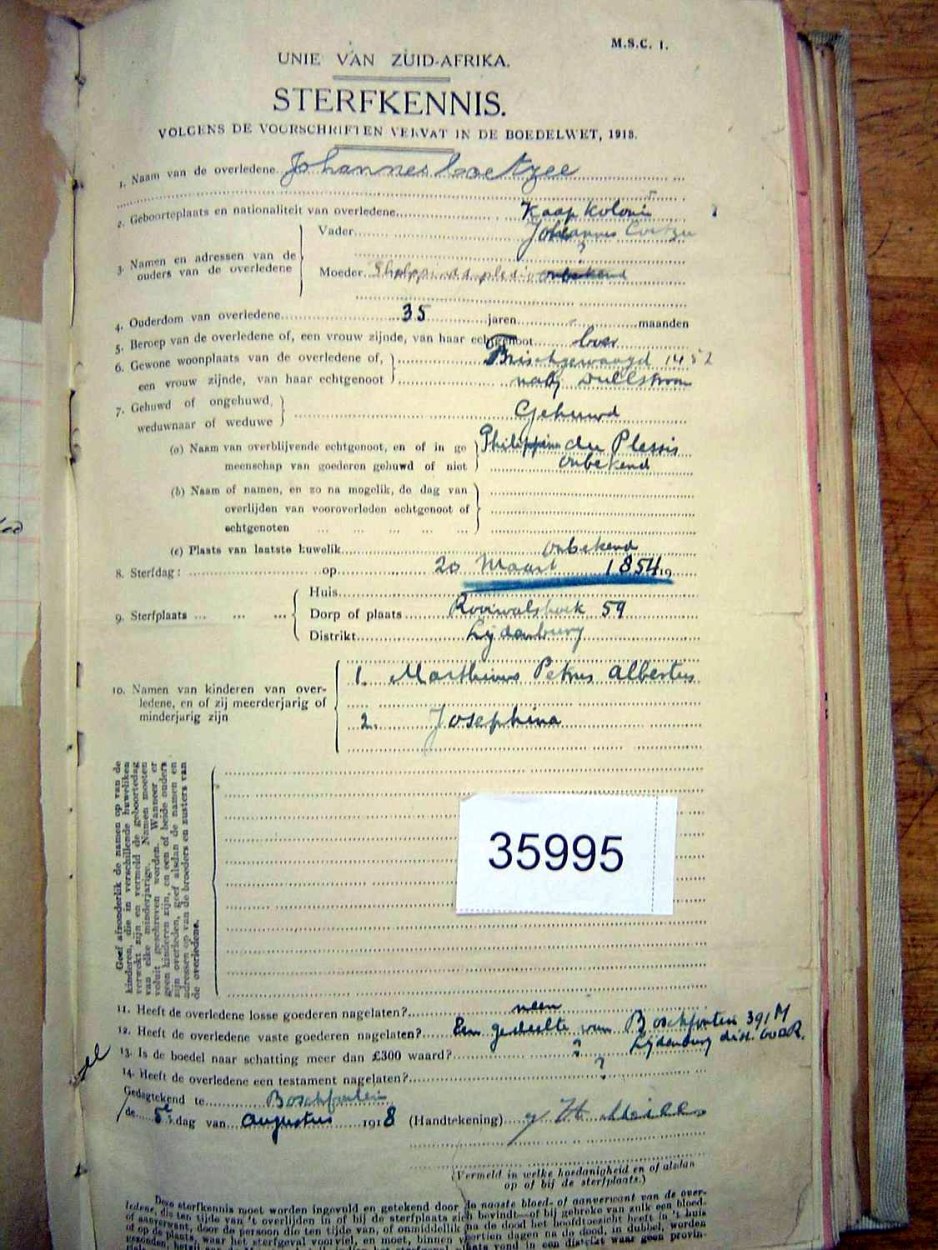 M.S.C. 1.
UNIE VAN ZUID-AFRIKA.
STERFKENNIS.
VOLGENS DE VOORSCHRIFTEN VERVAT IN DE BOEDELWET, 1913.
1. Naam van de overledene Johannes Coetzee
2. Geboorteplaats en nationaliteit van overledene Kaap Kolonie
3. Namen en adressen van de ouders van de overledene
Vader Johannes Coetzee
?
Moeder onbekend
4. Ouderdom van overledene 35 jaren maanden
5. Beroep van de overledene of, een vrouw zijnde, van haar echtgenoot boer
6. Gewone woonplaats van de overledene of, een vrouw zijnde, van haar echtgenoot
Frischgewaagd 1452
nabij Dullstroom
7. Gehuwd of ongehuwd, weduwnaar of weduwe Gehuwd
(a) Naam van overblijvende echtgenoot, en of in ge Philippina du Plessis
meenschap van goederen gehuwd of niet onbekend
(b) Naam of namen, en zo na mogelik, de dag van
overlijden van vooroverleden echtgenoot of
echtgenoten
(c) Plaats van laatste huwelik onbekend
8. Sterfdag: op 20 Maart 1854 19
9. Sterfplaats
Huis
Dorp of plaats Rooiwalshoek 59
Distrikt Lijdenburg
10. Namen van kinderen van over-
ledene, en of zij meerderjarig of
minderjarig zijn
1. Marthinus Petrus Albertus
2. Josephina
Geef afzonderlik de namen op van de
kinderen, die in verschillende huweliken
verwekt zijn en vermeld de geboortedag
van elke minderjarige. Namen moeten
voluit geschreven worden. Wanneer er
geen kinderen zijn, en een of beide ouders
zijn overleden, geef alsdan de namen en
adressen op van de broeders en zusters van
de overledene.
35995
11. Heeft de overledene losse goederen nagelaten? neen
12. Heeft de overledene vaste goederen nagelaten? Een gedeelte van Boschfontein 391 M
Lijdenburg dist. waar.
13. Is de boedel naar schatting meer dan £300 waard? ?
14. Heeft de overledene een testament nagelaten? ?
Gedagtekend te Boschfontein
de 5e dag van Augustus 1918 (Handtekening)
(Vermeld in welke hoedanigheid en of alsdan
op of bij de sterfplaats.)
Deze sterfkennis moet worden ingevuld en getekend door de naaste bloed- of aanverwant van de over-
ledene, die ten tijde van 't overlijden in of bij de sterfplaats zich bevindt—of bij gebreke van zulk een bloed-
of aanverwant, door de persoon die ten tijde van, of onmiddellik na de dood het hoofdtoezicht heeft in 't huis
of op de plaats, waar het sterfgeval voorviel, en moet, binnen veertien dagen na de dood, indien